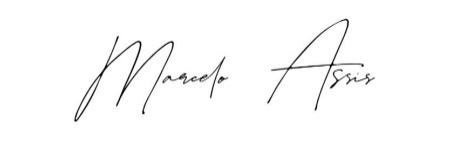 Marcelo Assis